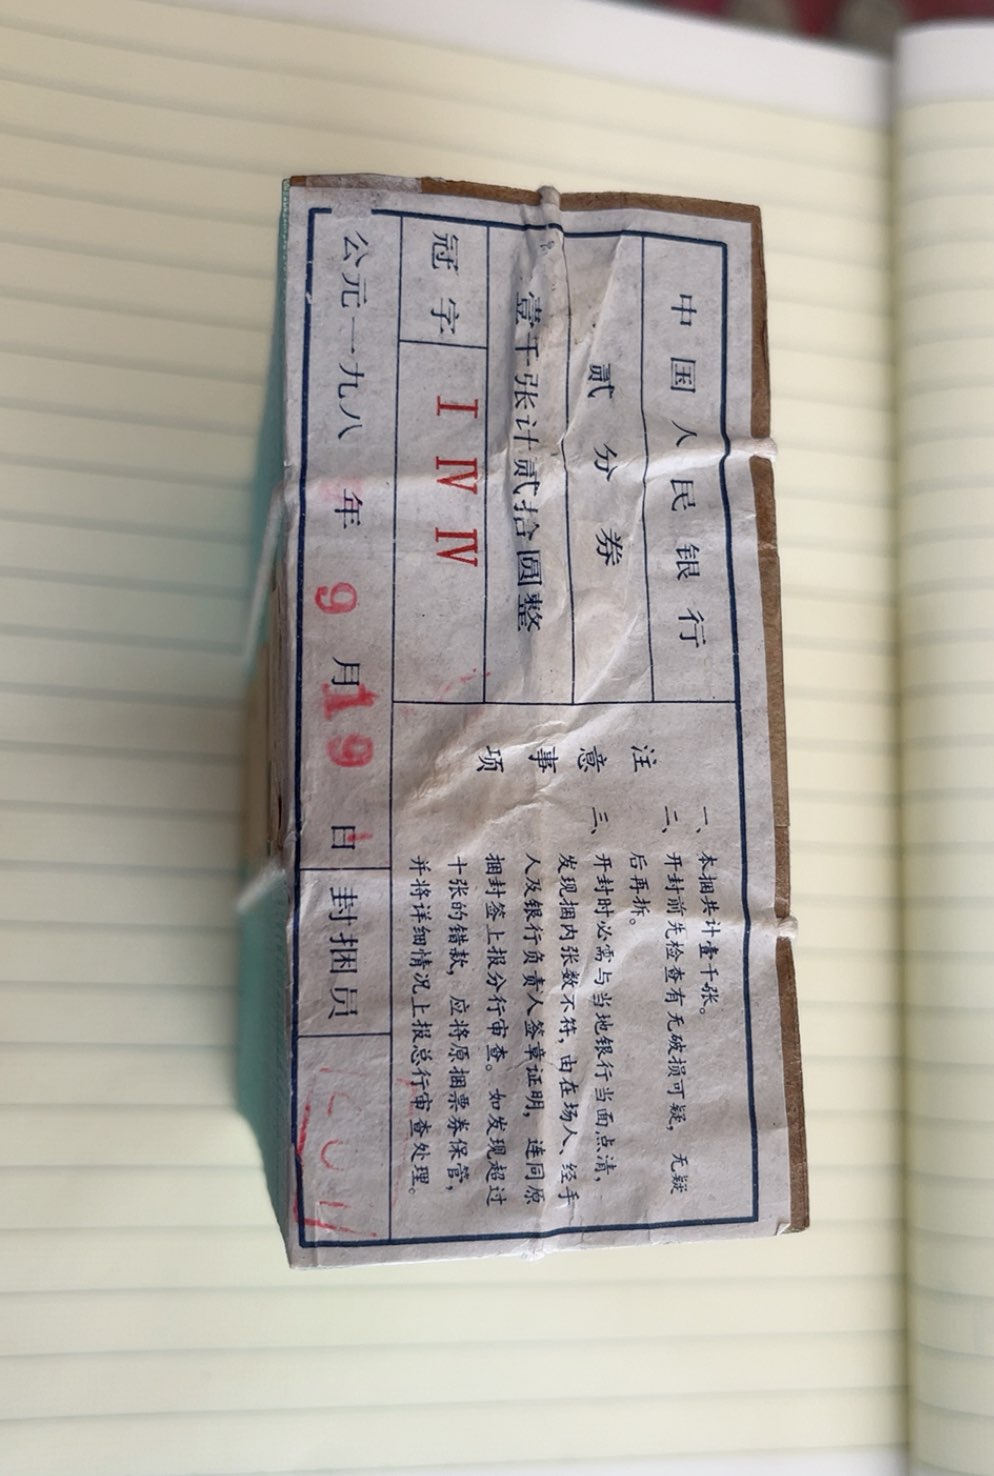 中国人民银行
贰分券
壹千张计贰拾圆整
冠字 I IV IV
公元一九八 年 9 月 19 日
封捆员
注意事项
一、本捆共计壹千张。
二、开封前先检查有无破损可疑，无疑
后再拆。
三、开封时必需与当地银行当面点清，
发现捆内张数不符，由在场人、经手
人及银行负责人签章证明，连同原
捆封签上报分行审查。如发现超过
十张的错款，应将原捆票券保管，
并将详细情况上报总行审查处理。